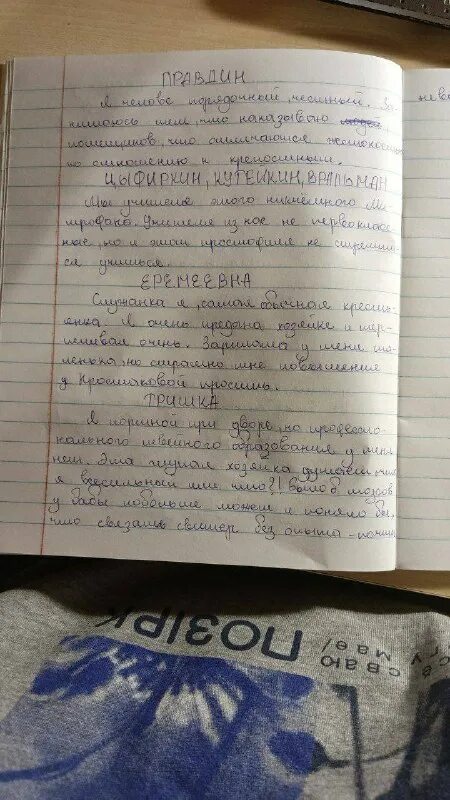 ПРАВДИН
Я человек порядочный, честный. За-
нимаюсь тем, что наказываю людей
помещиков, что отличаются жестокостью
по отношению к крепостным.
ЦЫФИРКИН, КУТЕЙКИН, ВРАЛЬМАН
Мы учителя этого никчёмного Ми-
трофана. Учителя из нас не первокласс-
ные, но и этот простофиля не стремит-
ся учиться.
ЕРЕМЕЕВНА
Служанка я, самая обычная кресть-
янка. Я очень предана хозяйке и тер-
пелива очень. Зарплата у меня ма-
ленькая, но страшно мне повышение
у Простаковой просить.
ТРИШКА
Я портной при дворе, но профессио-
нального швейного образования у меня
нет. Эта глупая хозяйка думает что
я всесильный или что?! Было б мозгов
у бабы побольше может и поняла бы,
что связать свитер без опыта
нево
ПОЗІРК
сваю
маеў